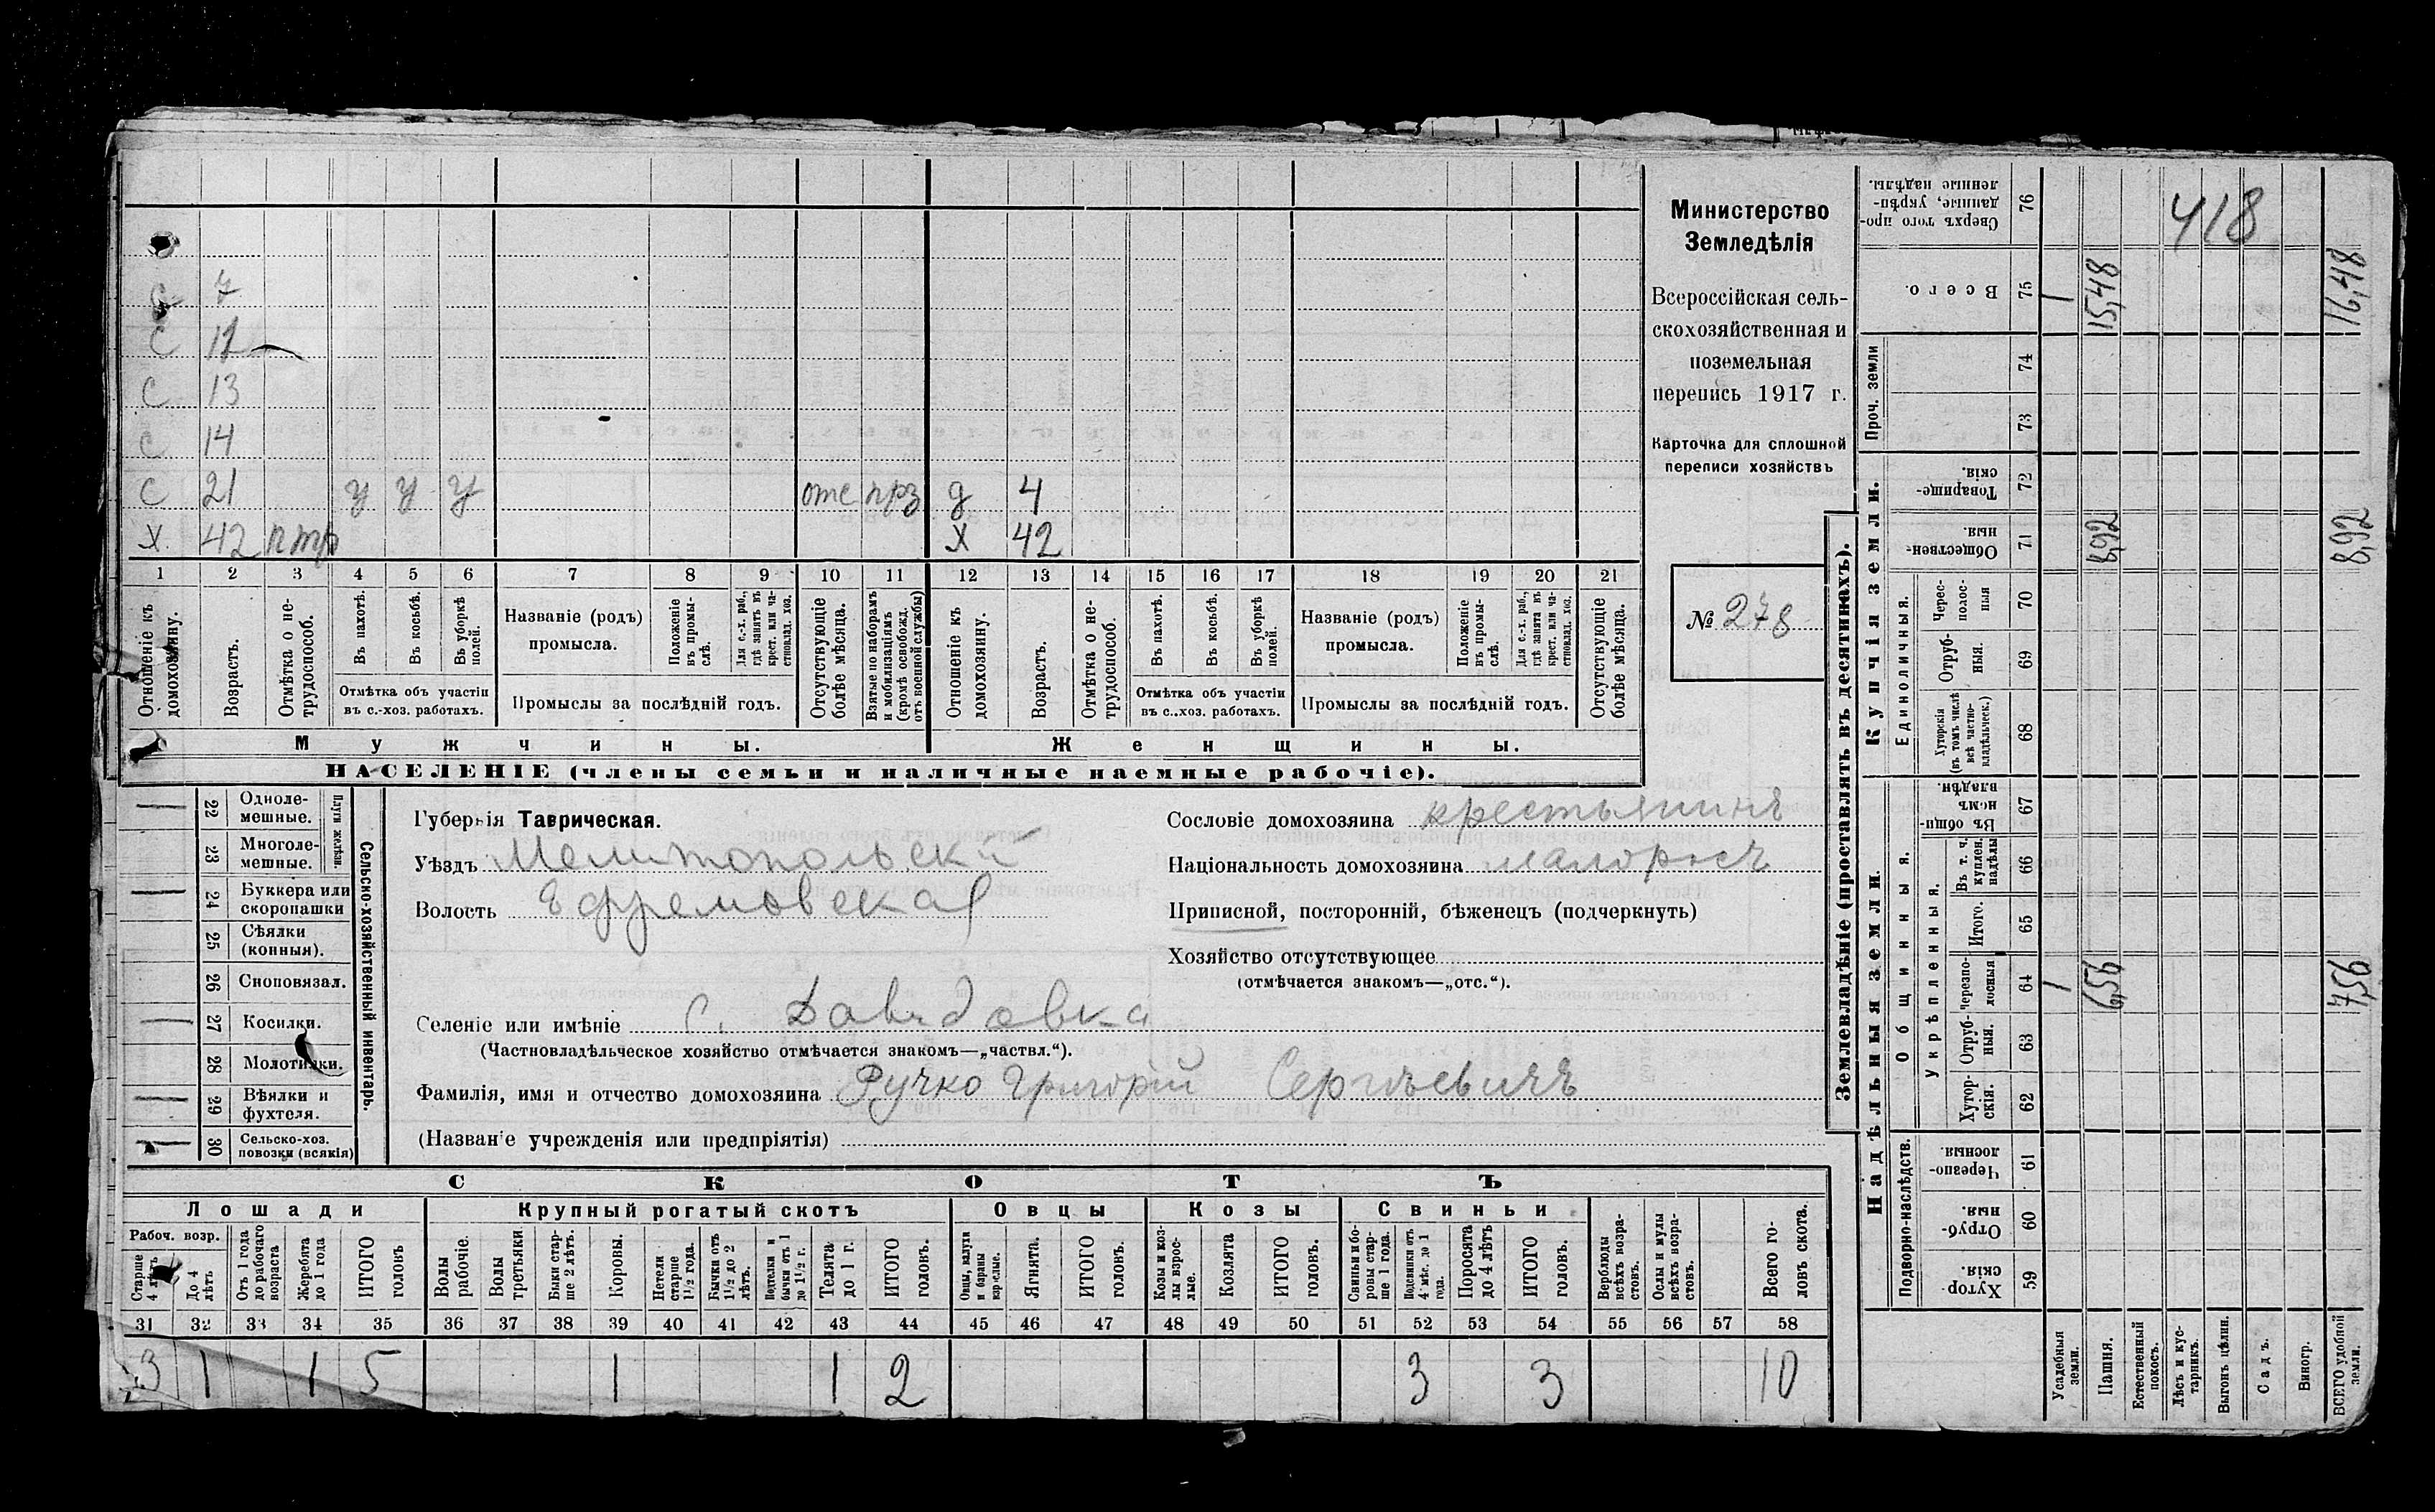 С 7
С 12
С 13
С 14
С 21 у у у отс прз д 4
Х 42 птр Х 42
1 2 3 4 5 6 7 8 9 10 11 12 13 14 15 16 17 18 19 20 21
Отношеніе къ домохозяину.
Возрастъ.
Отмѣтка о не-
трудоспособ.
Въ пахотѣ.
Въ косьбѣ.
Въ уборкѣ полей.
Отмѣтка объ участіи
въ с.-хоз. работахъ.
Названіе (родъ)
промысла.
Положеніе въ промы-
слѣ.
Для с.-х. раб., гдѣ занятъ въ крест. или ча-
стновлад. хоз.
Промыслы за послѣдній годъ.
Отсутствующіе болѣе мѣсяца.
Взятые по наборамъ и мобилизаціямъ (кромѣ освобожд. отъ военной службы)
Отношеніе къ домохозяину.
Возрастъ.
Отмѣтка о не-
трудоспособ.
Въ пахотѣ.
Въ косьбѣ.
Въ уборкѣ полей.
Отмѣтка объ участіи
въ с..хоз. работахъ.
Названіе (родъ)
промысла.
Положеніе въ промы-
слѣ.
Для с.-х. раб., гдѣ занятъ въ крест. или ча-
стновлад. хоз.
Промыслы за послѣдній годъ.
Отсутствующіе болѣе мѣсяца.
Мужчины.
Женщины.
НАСЕЛЕНІЕ (члены семьи и наличные наемные рабочіе).
Министерство
Земледѣлія
Всероссійская сель-
скохозяйственная и
поземельная
перепись 1917 г.
Карточка для сплошной
переписи хозяйствъ
№ 278
22 Одноле-
мешные.
23 Многоле-
мешные.
Плуги желѣзн.
24 Буккера или
скоропашки
25 Сѣялки
(конныя).
26 Сноповязал.
27 Косилки.
28 Молотилки.
29 Вѣялки и
фухтеля.
30 Сельско-хоз.
повозки (всякія)
Сельско-хозяйственный инвентарь.
Губернія Таврическая.
Уѣздъ Мелитопольскій
Волость Ефремовская
Сословіе домохозяина крестьянинъ
Національность домохозяина малоросъ
Приписной, посторонній, бѣженецъ (подчеркнуть)
Хозяйство отсутствующее
(отмѣчается знакомъ—„отс.“).
Селеніе или имѣніе с. Давидовка
(Частновладѣльческое хозяйство отмѣчается знакомъ—„частвл.“).
Фамилія, имя и отчество домохозяина Ручко Григорій Сергѣевичъ
(Названіе учрежденія или предпріятія)
СКОТЪ
Лошади
Крупный рогатый скотъ
Овцы
Козы
Свиньи
Рабоч. возр.
Старше 4 лѣтъ
До 4 лѣтъ
Отъ 1 года до рабочаго возраста
Жеребята до 1 года
ИТОГО головъ
Волы рабочіе.
Волы третьяки
Быки стар-
ше 2 лѣтъ.
Коровы.
Нетели старше 1½ года.
Бычки отъ 1½ до 2 лѣтъ.
Подтелки и бычки отъ 1 до 1½ г.
Телята до 1 г.
ИТОГО головъ.
Овцы, валухи и бараны взрослые.
Ягнята.
ИТОГО головъ.
Козы и коз-
лы взрос-
лые.
Козлята
ИТОГО головъ.
Свиньи и бо-
ровы стар-
ше 1 года.
Подсвинки отъ 4 мѣс. до 1 года.
Поросята до 4 лѣтъ
ИТОГО головъ.
Верблюды всѣхъ возра-
стовъ.
Ослы и мулы всѣхъ возра-
стовъ.
Всего го-
ловъ скота.
31 32 33 34 35 36 37 38 39 40 41 42 43 44 45 46 47 48 49 50 51 52 53 54 55 56 57 58
3 1 1 5 1 1 2 3 3 10
Землевладѣніе (проставлять въ десятинахъ).
Надѣльныя земли.
Купчія земли.
Проч. земли
Подворно-наслѣдств.
Общинныя.
Укрѣпленныя.
Единоличныя.
Хутор-
скія. 59
Отруб-
ныя. 60
Черезпо-
лосныя. 61
Хутор-
скія. 62
Отруб-
ныя. 63
Черезпо-
лосныя 64 1 6,56 7,56
Итого. 65
Въ т. ч. куплен. надѣлы 66
Въ общин-
номъ владѣн. 67
Хуторскія (въ томъ числѣ всѣ частно-
владѣльческ.) 68
Отруб-
ныя. 69
Черес-
полос-
ныя 70
Обществен-
ныя. 71 8,92 8,92
Товарище-
скія. 72
73
74
Всего. 75 1 15,48 16,48
Сверхъ того про-
данные, укрѣп-
ленные надѣлы. 76
418
Усадебныя земли.
Пашня.
Естественный покосъ.
Лѣсъ и кус-
тарникъ.
Выгонъ цѣлин.
Садъ.
Виногр.
ВСЕГО удобной земли.